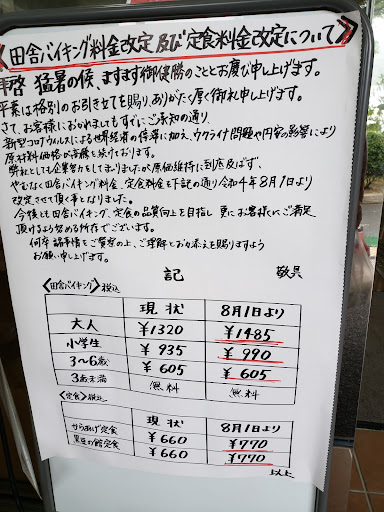 《田舎バイキング料金改定及び定食料金改定について》
拝啓 猛暑の候、ますます御優勝のこととお慶び申し上げます。
平素は格別のお引き立てを賜り、ありがたく厚く御礼申し上げます。
さて、お客様におかれましてもすでにご承知の通り
新型コロナウィルスによる世界経済の停滞に加え、ウクライナ問題や円安の影響により
原材料価格が高騰を続けております。
弊社としても企業努力をしてまいりましたが原価維持に到底及ばず、
やむなく田舎バイキング料金、定食料金を下記の通り令和4年8月1日より
改定させて頂く事となりました。
今後とも田舎バイキング、定食の品質向上を目指し 更にお客様にご満足
頂けるよう努める所存でございます。
何卒 諸事情をご賢察の上、ご理解とお力添えを賜りますよう
お願い申し上げます。
敬具
記
〈田舎バイキング〉税込
現状 8月1日より
大人 ¥1320 ¥1485
小学生 ¥935 ¥990
3〜6歳 ¥605 ¥605
3歳未満 無料 無料
〈定食〉税込
現状 8月1日より
からあげ定食 ¥660 ¥770
黒豆の館定食 ¥660 ¥770
以上